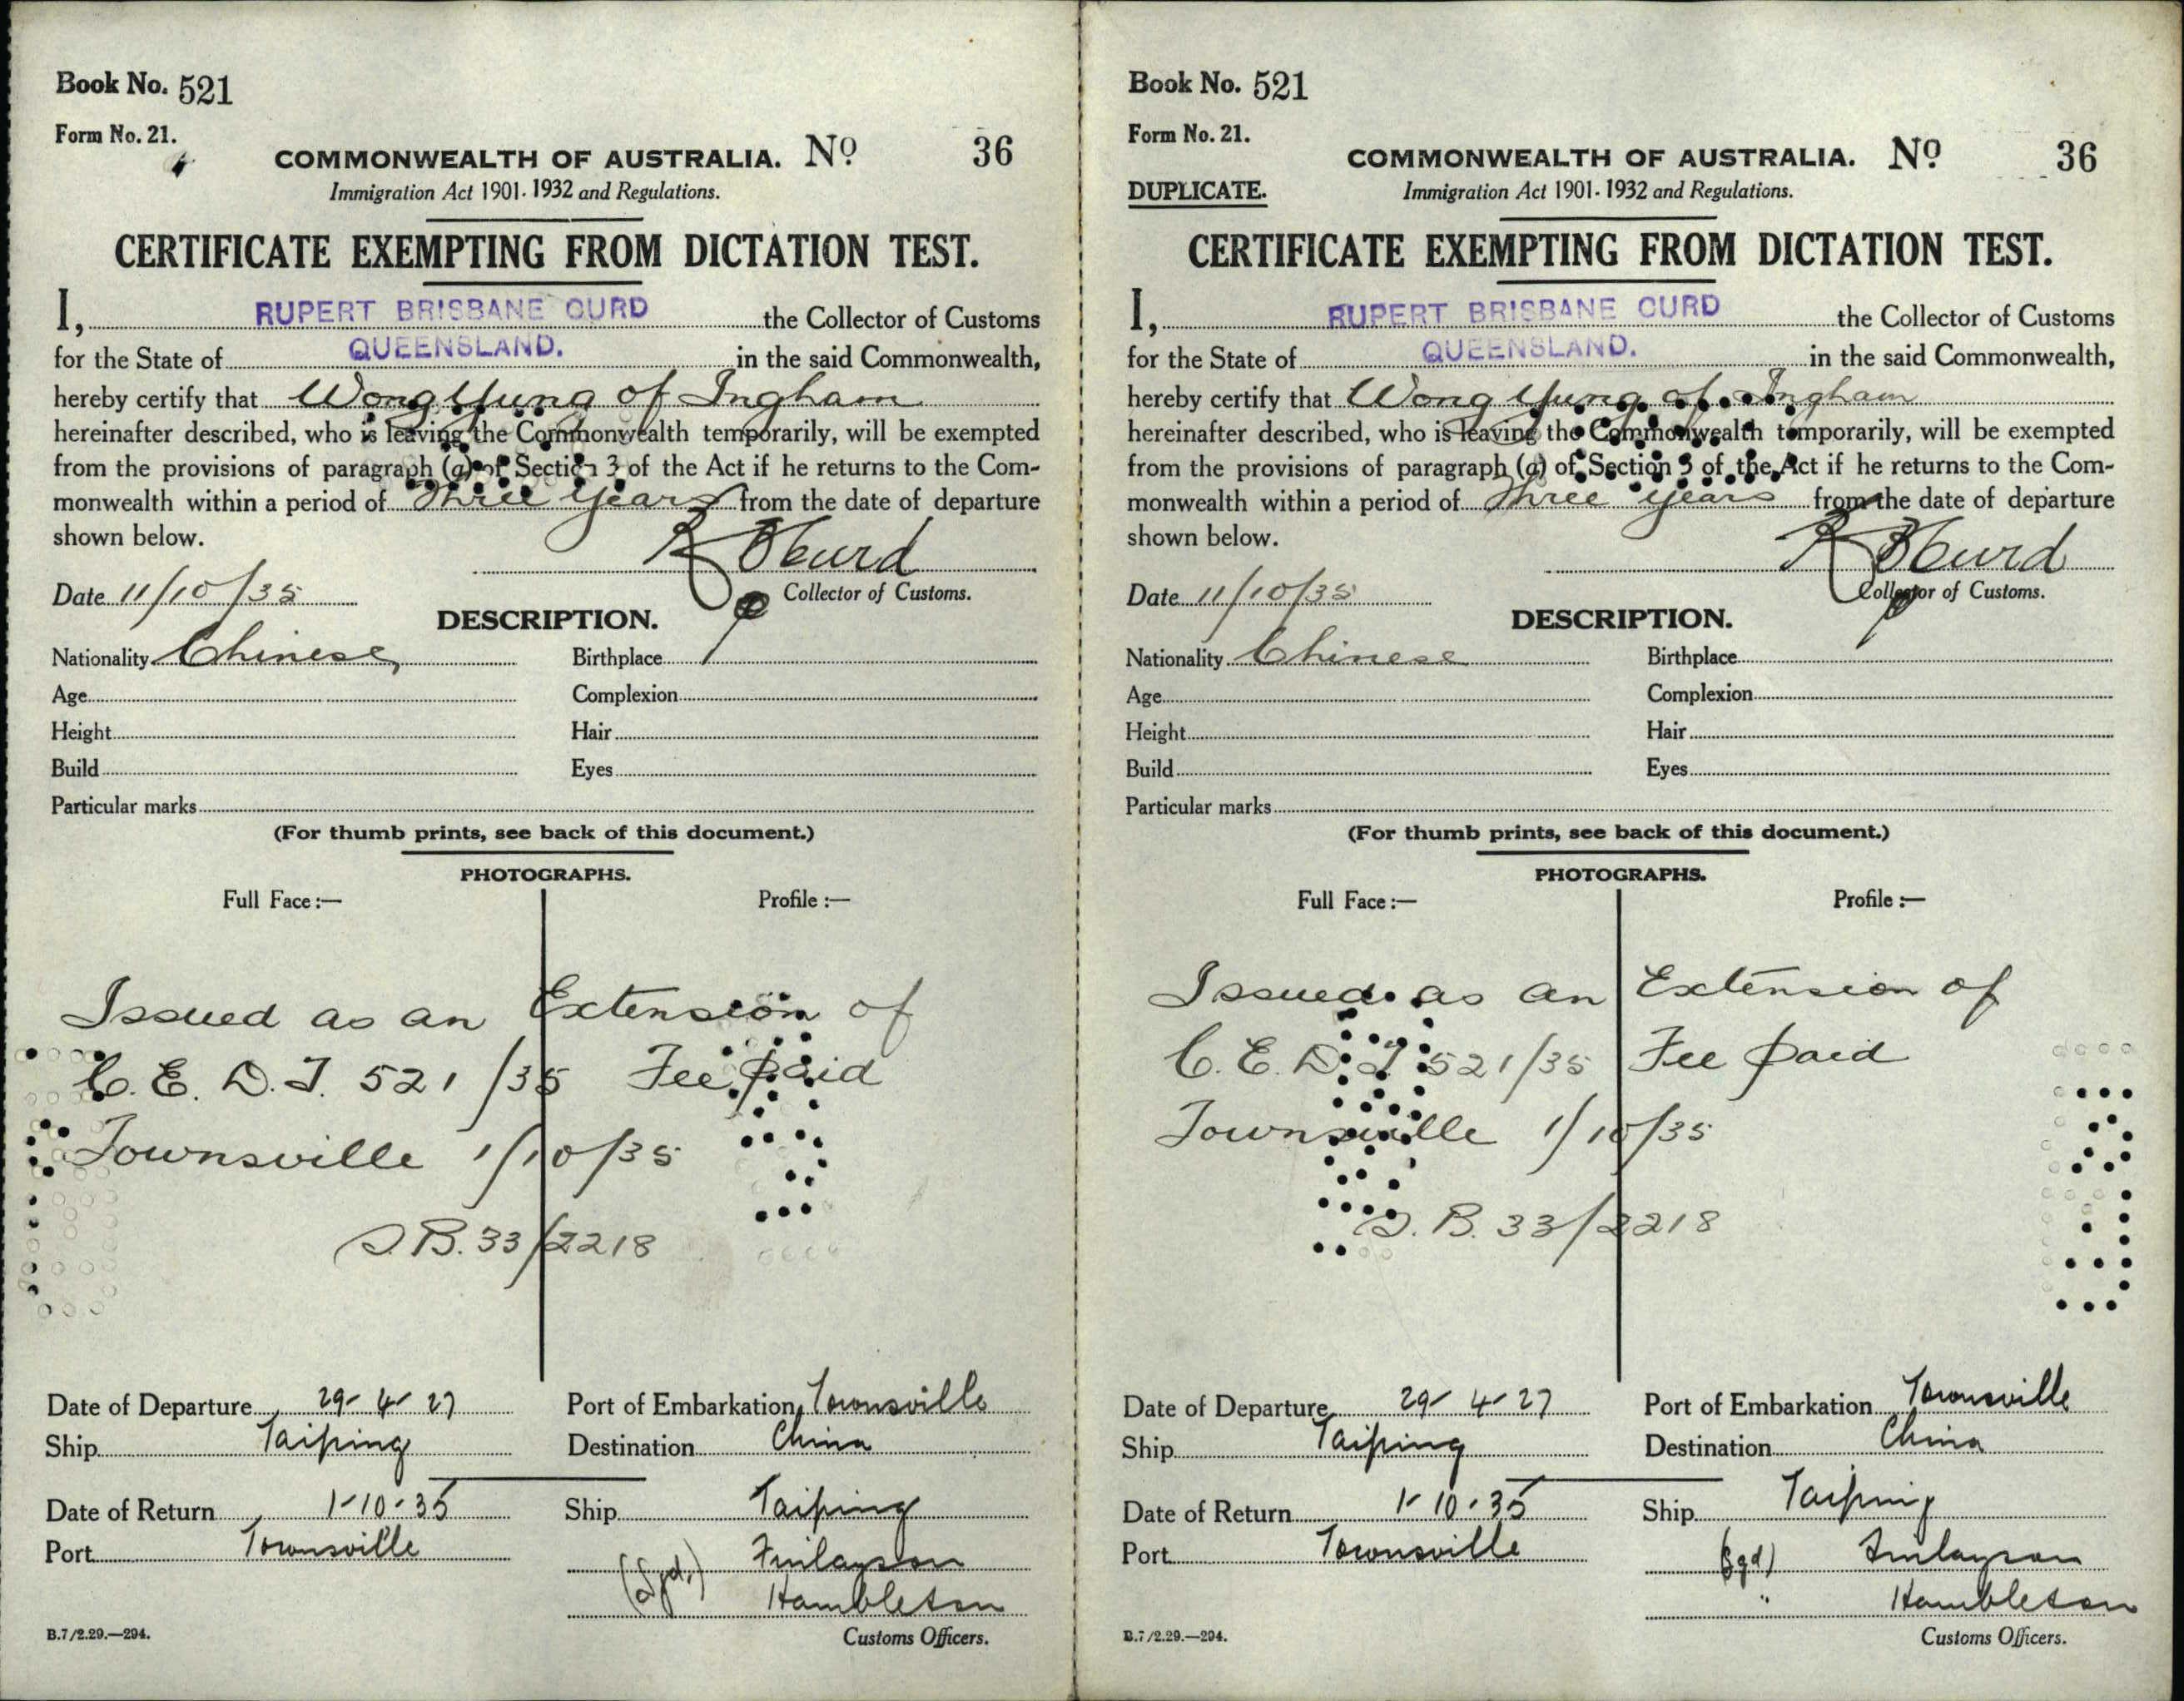 Book No. 521
Form No. 21.
COMMONWEALTH OF AUSTRALIA. No 36
Immigration Act 1901-1932 and Regulations.
CERTIFICATE EXEMPTING FROM DICTATION TEST.
I, RUPERT BRISBANE CURD the Collector of Customs
for the State of QUEENSLAND. in the said Commonwealth,
hereby certify that Wong Yung of Ingham
hereinafter described, who is leaving the Commonwealth temporarily, will be exempted
from the provisions of paragraph (a) of Section 3 of the Act if he returns to the Com-
monwealth within a period of Three Years from the date of departure
shown below.
R B Curd
Date 11/10/35 Collector of Customs.
DESCRIPTION.
Nationality Chinese Birthplace
Age Complexion
Height Hair
Build Eyes
Particular marks
(For thumb prints, see back of this document.)
PHOTOGRAPHS.
Full Face :— Profile :—
Issued as an Extension of
C. E. D. T. 521/35 Fee paid
Townsville 1/10/35
S.B. 33/2218
Date of Departure 29-4-27 Port of Embarkation Townsville
Ship Taiping Destination China
Date of Return 1-10-35 Ship Taiping
Port Townsville (Sgd.) Finlayson
Hambleton
B.7/2.29.—294. Customs Officers.
Book No. 521
Form No. 21.
COMMONWEALTH OF AUSTRALIA. No 36
DUPLICATE. Immigration Act 1901-1932 and Regulations.
CERTIFICATE EXEMPTING FROM DICTATION TEST.
I, RUPERT BRISBANE CURD the Collector of Customs
for the State of QUEENSLAND. in the said Commonwealth,
hereby certify that Wong Yung of Ingham
hereinafter described, who is leaving the Commonwealth temporarily, will be exempted
from the provisions of paragraph (a) of Section 3 of the Act if he returns to the Com-
monwealth within a period of Three years from the date of departure
shown below.
R B Curd
Date 11/10/35 Collector of Customs.
DESCRIPTION.
Nationality Chinese Birthplace
Age Complexion
Height Hair
Build Eyes
Particular marks
(For thumb prints, see back of this document.)
PHOTOGRAPHS.
Full Face :— Profile :—
Issued as an Extension of
C. E. D. T. 521/35 Fee paid
Townsville 1/10/35
S. B. 33/2218
Date of Departure 29-4-27 Port of Embarkation Townsville
Ship Taiping Destination China
Date of Return 1-10-35 Ship Taiping
Port Townsville (Sgd) Finlayson
" Hambleton
B.7/2.29.—294. Customs Officers.